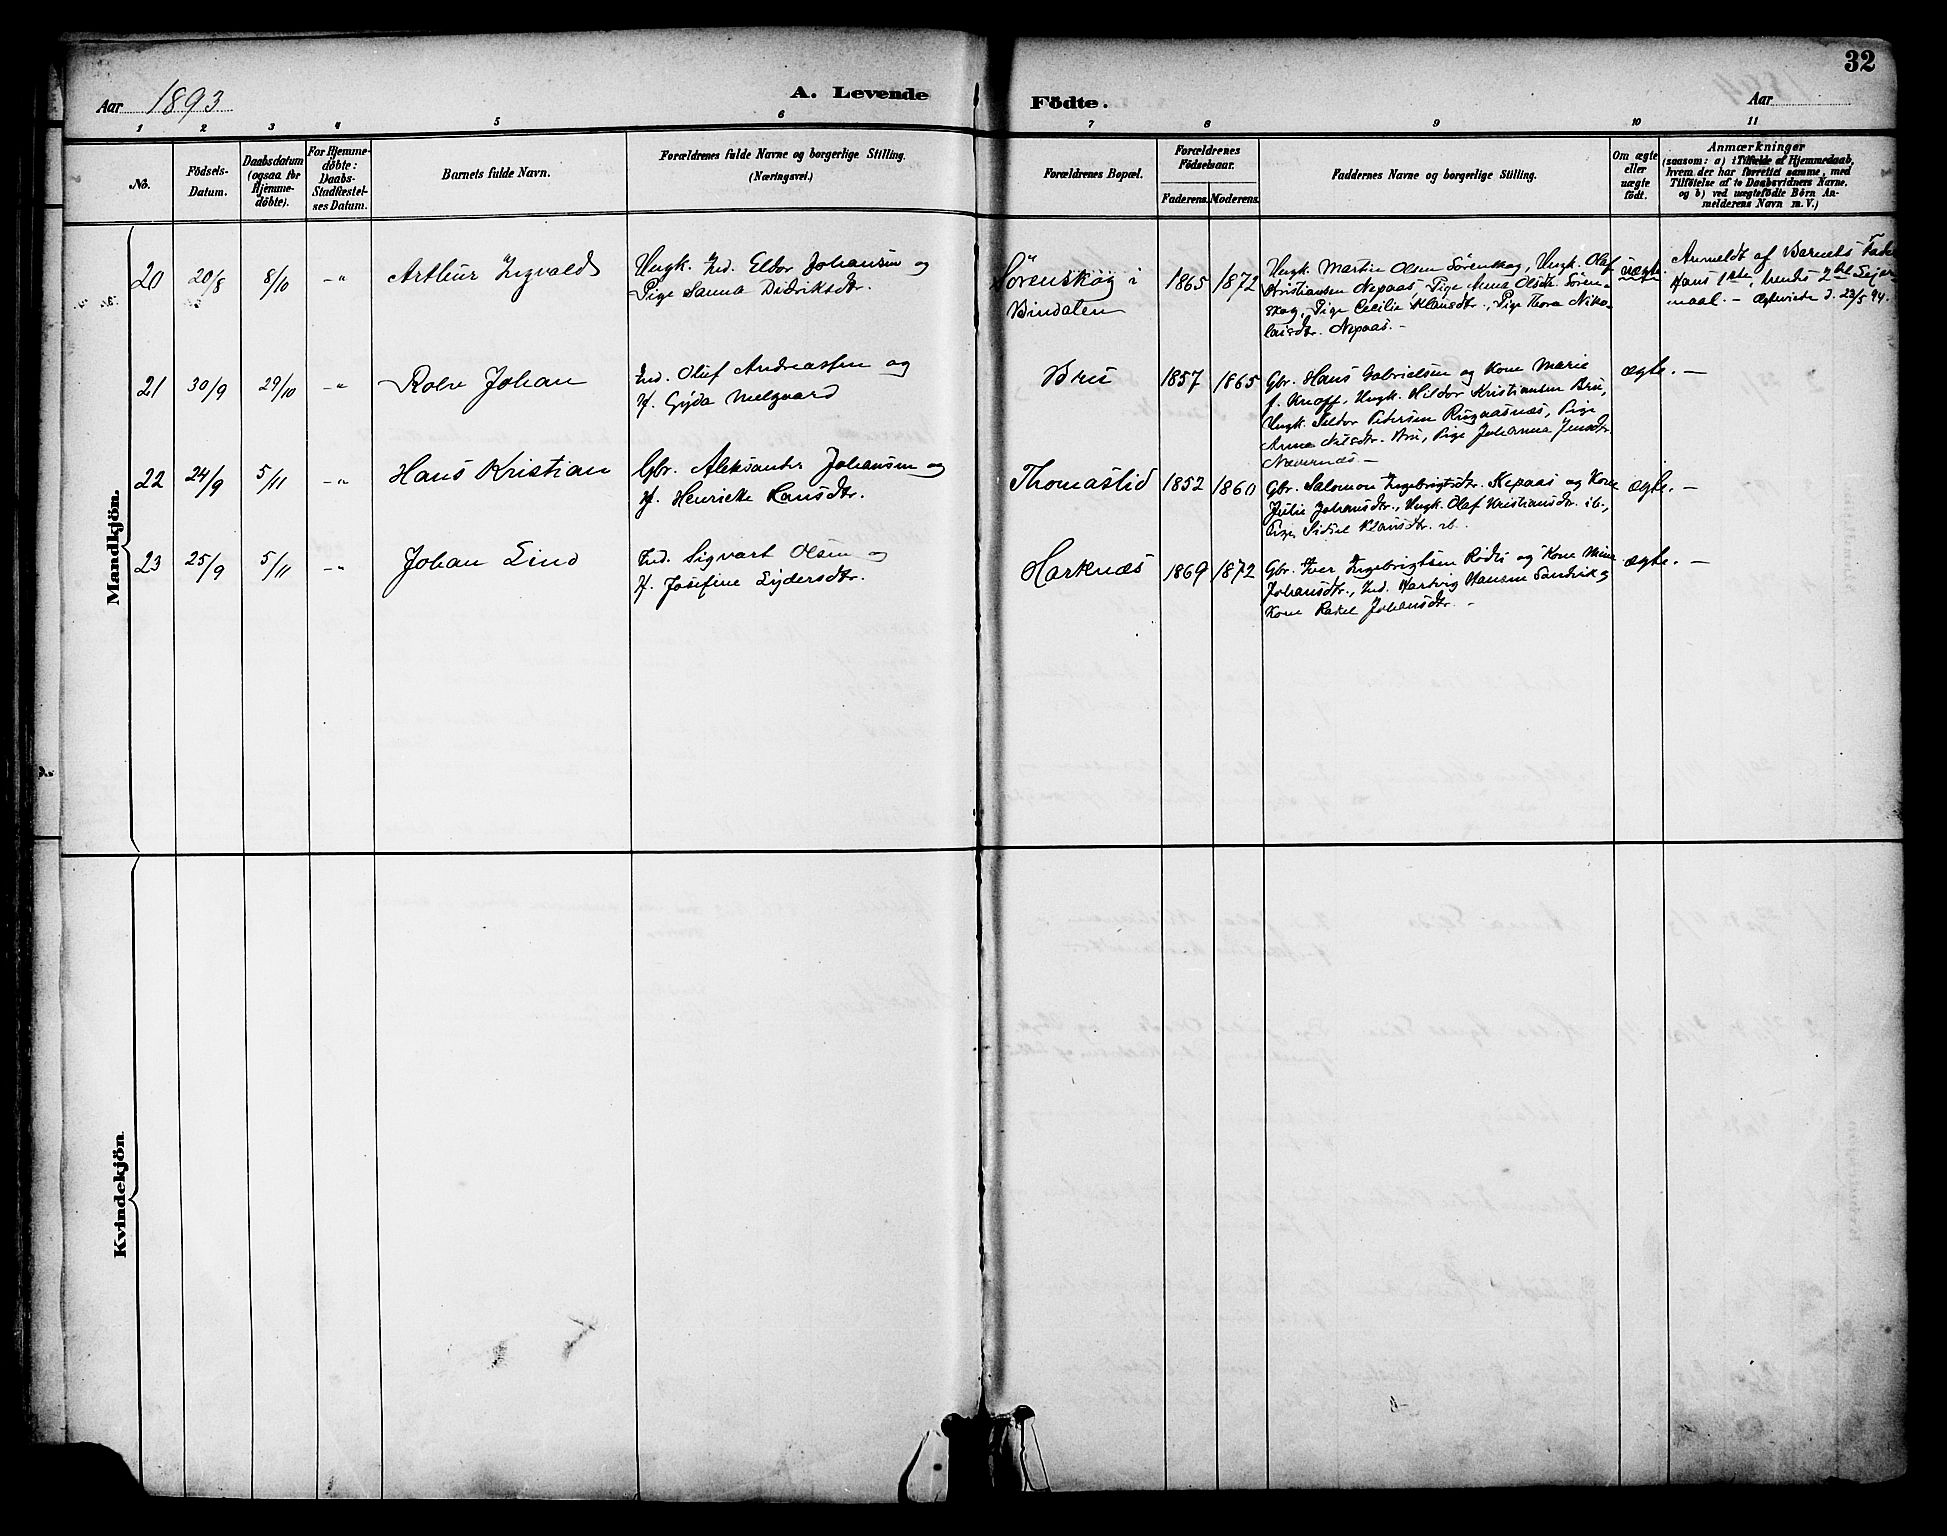 32
Aar 1893
A. Levende
Födte.
Aar
1 2 3 4 5 6 7 8 9 10 11
No.
Födsels-
Datum.
Daabsdatum
(ogsaa for
Hjemme-
döbte).
For Hjemme-
döbte:
Daabs-
Stadfæstel-
ses Datum.
Barnets fulde Navn.
Forældrenes fulde Navne og borgerlige Stilling.
(Næringsvei.)
Forældrenes Bopæl.
Forældrenes
Födselsaar.
Faderens. Moderens.
Faddernes Navne og borgerlige Stilling.
Om ægte
eller
uægte
födt.
Anmærkninger
(saasom: a) i Tilfælde af Hjemmedaab,
hvem der har forrettet samme, med
Tilföielse af to Daabsvidners Navne,
og b) ved uægtefödte Börn An-
melderens Navn m. V.)
Mandkjön.
20 20/8 8/10 -"- Arthur Ingvald
Ungk. Ind. Eldor Johansen og
Pige Sanna Didriksdtr.
Sörenskog i
Bindalen
1865 1872
Ungk. Martin Olsen Sörenskog, Ungk. Olaf
Kristiansen Nepaas, Pige Anna Olsdtr Sören-
skog, Pige Cecilie Klausdtr., Pige Thora Niko-
laisdtr. Nepaas. -
uægte.
Anmeldt af Barnets Fader
Hans 1ste, hendes 2det Leier-
maal. -
21 30/9 29/10 -"- Rolv Johan
Ind. Oluf Andreassen og
H. Gyda Melgaard
Bru
1857 1865
Gbr. Hans Gabrielsen og Kone Marie
f. Knoff, Ungk. Hildor Kristiansen Bru,
Ungk. Seldor Pedersen Rugaasnæs, Pige
Anna Nilsdtr. Bru, Pige Johanna Jensdtr.
Nævernæs -
ægte. -
22 24/9 5/11 -"- Hans Kristian
Gbr. Aleksander Johansen og
H. Henrikke Hansdtr.
Thomaslid
1852 1860
Gbr. Salomon Ingebrigtsdtr. Nepaas og Kone
Julie Johansdtr., Ungk. Olaf Kristiansdtr. ib.,
Pige Sidsel Klausdtr. ib.
ægte. -
23 25/9 5/11 -"- Johan Lind
Ind. Sigvart Olsen og
H. Josefine Lydersdtr.
Harknæs
1869 1872
Gbr. Iver Ingebrigtsen Rödli og Kone Mina
Johansdtr., Ind. Hartvig Hansen Sandvik og
Kone Rakel Johansdtr. -
ægte. -
Kvindekjön.